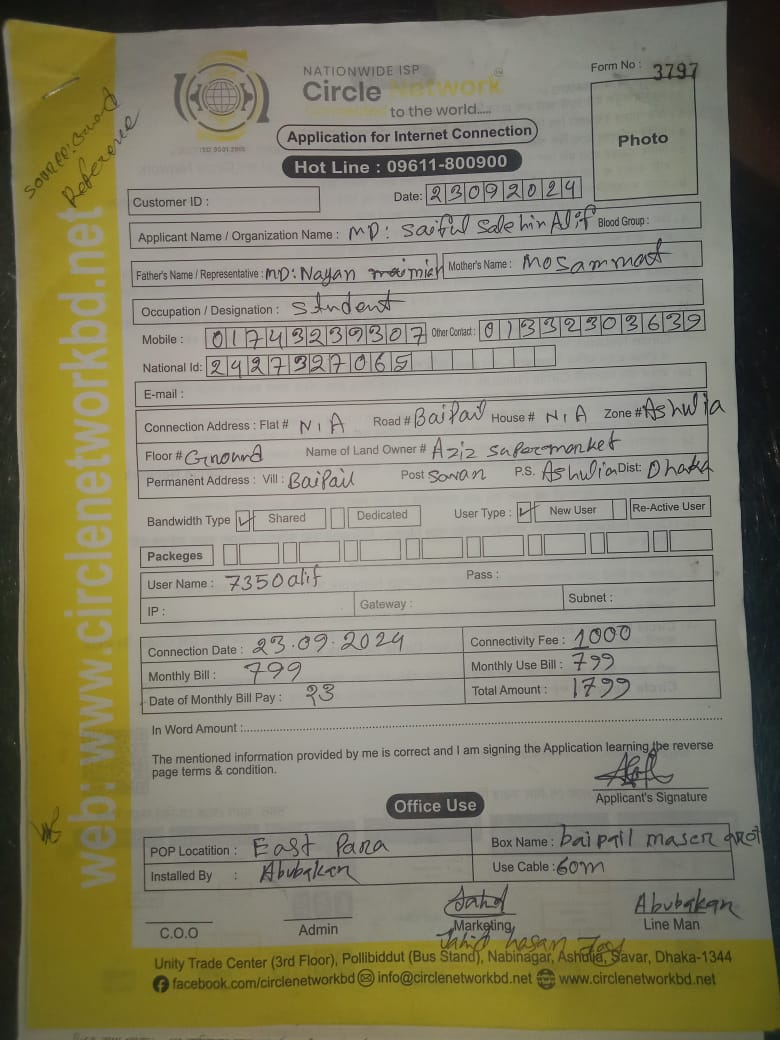 SOURCE: Ground
Reference
NATIONWIDE ISP
Circle Network
connected to the world.....
ISO 9001:2008
Form No : 3797
Photo
Application for Internet Connection
Hot Line : 09611-800900
Customer ID :
Date: 23092024
Applicant Name / Organization Name : MD: Saiful Salehin Alif Blood Group :
Father's Name / Representative : MD: Nayan miah Mother's Name : Mosammat
Occupation / Designation : Student
Mobile : 01743239307 Other Contact : 01332303639
National Id: 2427327065
E-mail :
Connection Address : Flat # N/A Road # Baipail House # N/A Zone # Ashulia
Floor # Ground Name of Land Owner # Aziz supermarket
Permanent Address : Vill : Baipail Post Savar P.S. Ashulia Dist: Dhaka
Bandwidth Type ✓ Shared Dedicated User Type : ✓ New User Re-Active User
Packeges
User Name : 7350alif Pass :
IP : Gateway : Subnet :
Connection Date : 23.09.2024 Connectivity Fee : 1000
Monthly Bill : 799 Monthly Use Bill : 799
Date of Monthly Bill Pay : 23 Total Amount : 1799
In Word Amount :
The mentioned information provided by me is correct and I am signing the Application learning the reverse
page terms & condition.
Applicant's Signature
Office Use
POP Locatition : East Para Box Name : baipail
Installed By : Abubakar Use Cable : 60m
C.O.O Admin Jahid Marketing Abubakar Line Man
Jahid hasan
Unity Trade Center (3rd Floor), Pollibiddut (Bus Stand), Nabinagar, Ashulia, Savar, Dhaka-1344
facebook.com/circlenetworkbd info@circlenetworkbd.net www.circlenetworkbd.net
web: www.circlenetworkbd.net